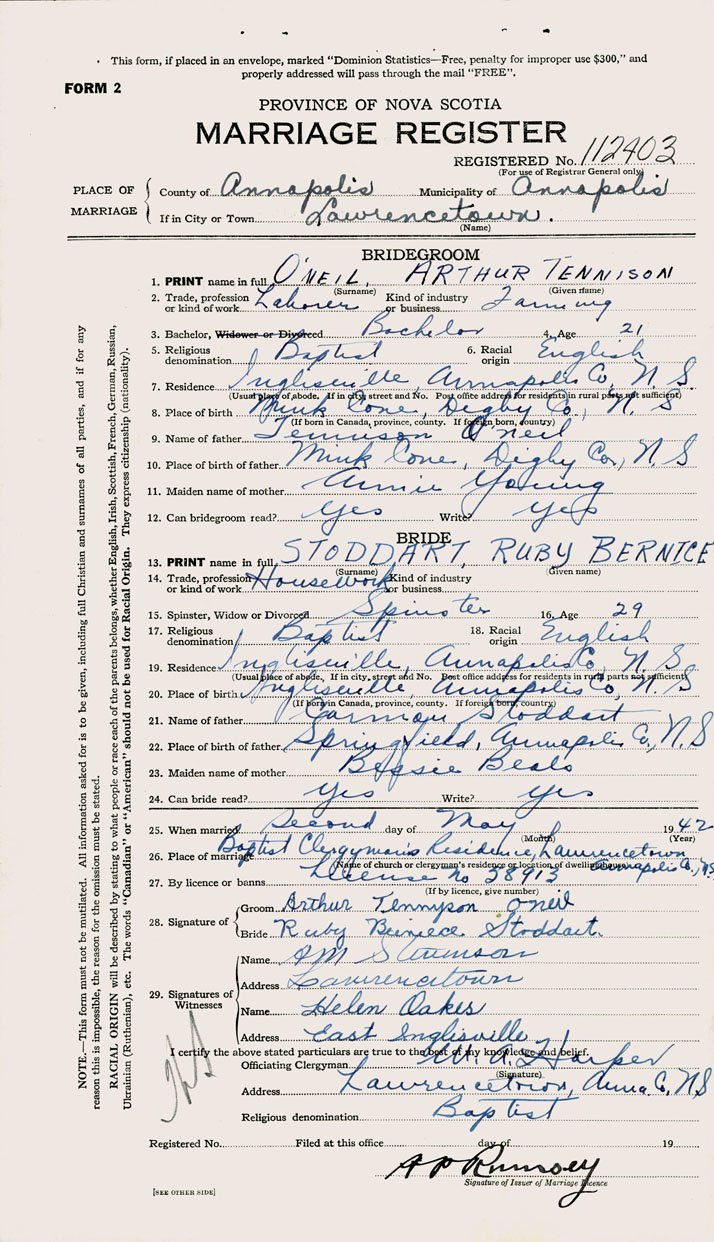 This form, if placed in an envelope, marked "Dominion Statistics—Free, penalty for improper use $300," and
properly addressed will pass through the mail "FREE".
FORM 2
PROVINCE OF NOVA SCOTIA
MARRIAGE REGISTER
REGISTERED No. 112403
(For use of Registrar General only)
PLACE OF MARRIAGE
County of Annapolis Municipality of Annapolis
If in City or Town Lawrencetown.
(Name)
BRIDEGROOM
1. PRINT name in full O'NEIL, ARTHUR TENNISON
(Surname) (Given name)
2. Trade, profession or kind of work Laborer Kind of industry or business Farming
3. Bachelor, Widower or Divorced Bachelor 4. Age 21
5. Religious denomination Baptist 6. Racial origin English
7. Residence Inglisville, Annapolis Co, N. S.
(Usual place of abode. If in city, street and No. Post office address for residents in rural parts not sufficient)
8. Place of birth Mink Cone, Digby Co., N. S
(If born in Canada, province, county. If foreign born, country)
9. Name of father Tennison O'neil
10. Place of birth of father Mink Cone, Digby Co., N. S
11. Maiden name of mother Annie Young
12. Can bridegroom read? Yes Write? Yes
BRIDE
13. PRINT name in full STODDART, RUBY BERNICE
(Surname) (Given name)
14. Trade, profession or kind of work Housework Kind of industry or business
15. Spinster, Widow or Divorced Spinster 16. Age 29
17. Religious denomination Baptist 18. Racial origin English
19. Residence Inglisville, Annapolis Co, N. S
(Usual place of abode. If in city, street and No. Post office address for residents in rural parts not sufficient)
20. Place of birth Inglisville, Annapolis Co, N. S
(If born in Canada, province, county. If foreign born, country)
21. Name of father Stoddart
22. Place of birth of father Springfield, Annapolis Co, N. S
23. Maiden name of mother Bessie Beals
24. Can bride read? Yes Write? Yes
25. When married Second day of May 1942
(Month) (Year)
26. Place of marriage Baptist Clergyman's Residence, Lawrencetown Annapolis Co., NS
(Name of church or clergyman's residence or location of dwelling house)
27. By licence or banns License no 38913
(If by licence, give number)
28. Signature of
Groom Arthur Tennyson O'neil
Bride Ruby Beiniece Stoddart.
29. Signatures of Witnesses
Name
Address Lawrencetown
Name Helen Oakes
Address East Inglisville
I certify the above stated particulars are true to the best of my knowledge and belief.
Officiating Clergyman Harper
(Signature)
Address Lawrencetown, Anna. Co, NS
Religious denomination Baptist
Registered No. Filed at this office day of 19
A P Rumsey
Signature of Issuer of Marriage Licence
[SEE OTHER SIDE]
NOTE.—This form must not be mutilated. All information asked for is to be given, including full Christian and surnames of all parties, and if for any
reason this is impossible, the reason for the omission must be stated.
RACIAL ORIGIN will be described by stating to what people or race each of the parents belongs, whether English, Irish, Scottish, French, German, Russian,
Ukrainian (Ruthenian), etc. The words "Canadian" or "American" should not be used for Racial Origin. They express citizenship (nationality).